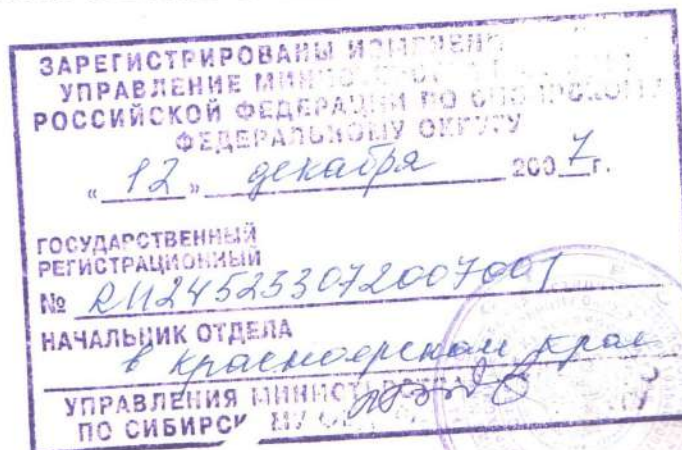 ЗАРЕГИСТРИРОВАНЫ ИЗМЕНЕНИ
УПРАВЛЕНИЕ
РОССИЙСКОЙ ФЕДЕРАЦИИ ПО СИБИРСКОМУ
ФЕДЕРАЛЬНОМУ ОКРУГУ
« 12 » декабря 2007 г.
ГОСУДАРСТВЕННЫЙ
РЕГИСТРАЦИОННЫЙ
№ RU245233072007001
НАЧАЛЬНИК ОТДЕЛА
в Красноярском крае
УПРАВЛЕНИЯ
ПО СИБИРСК